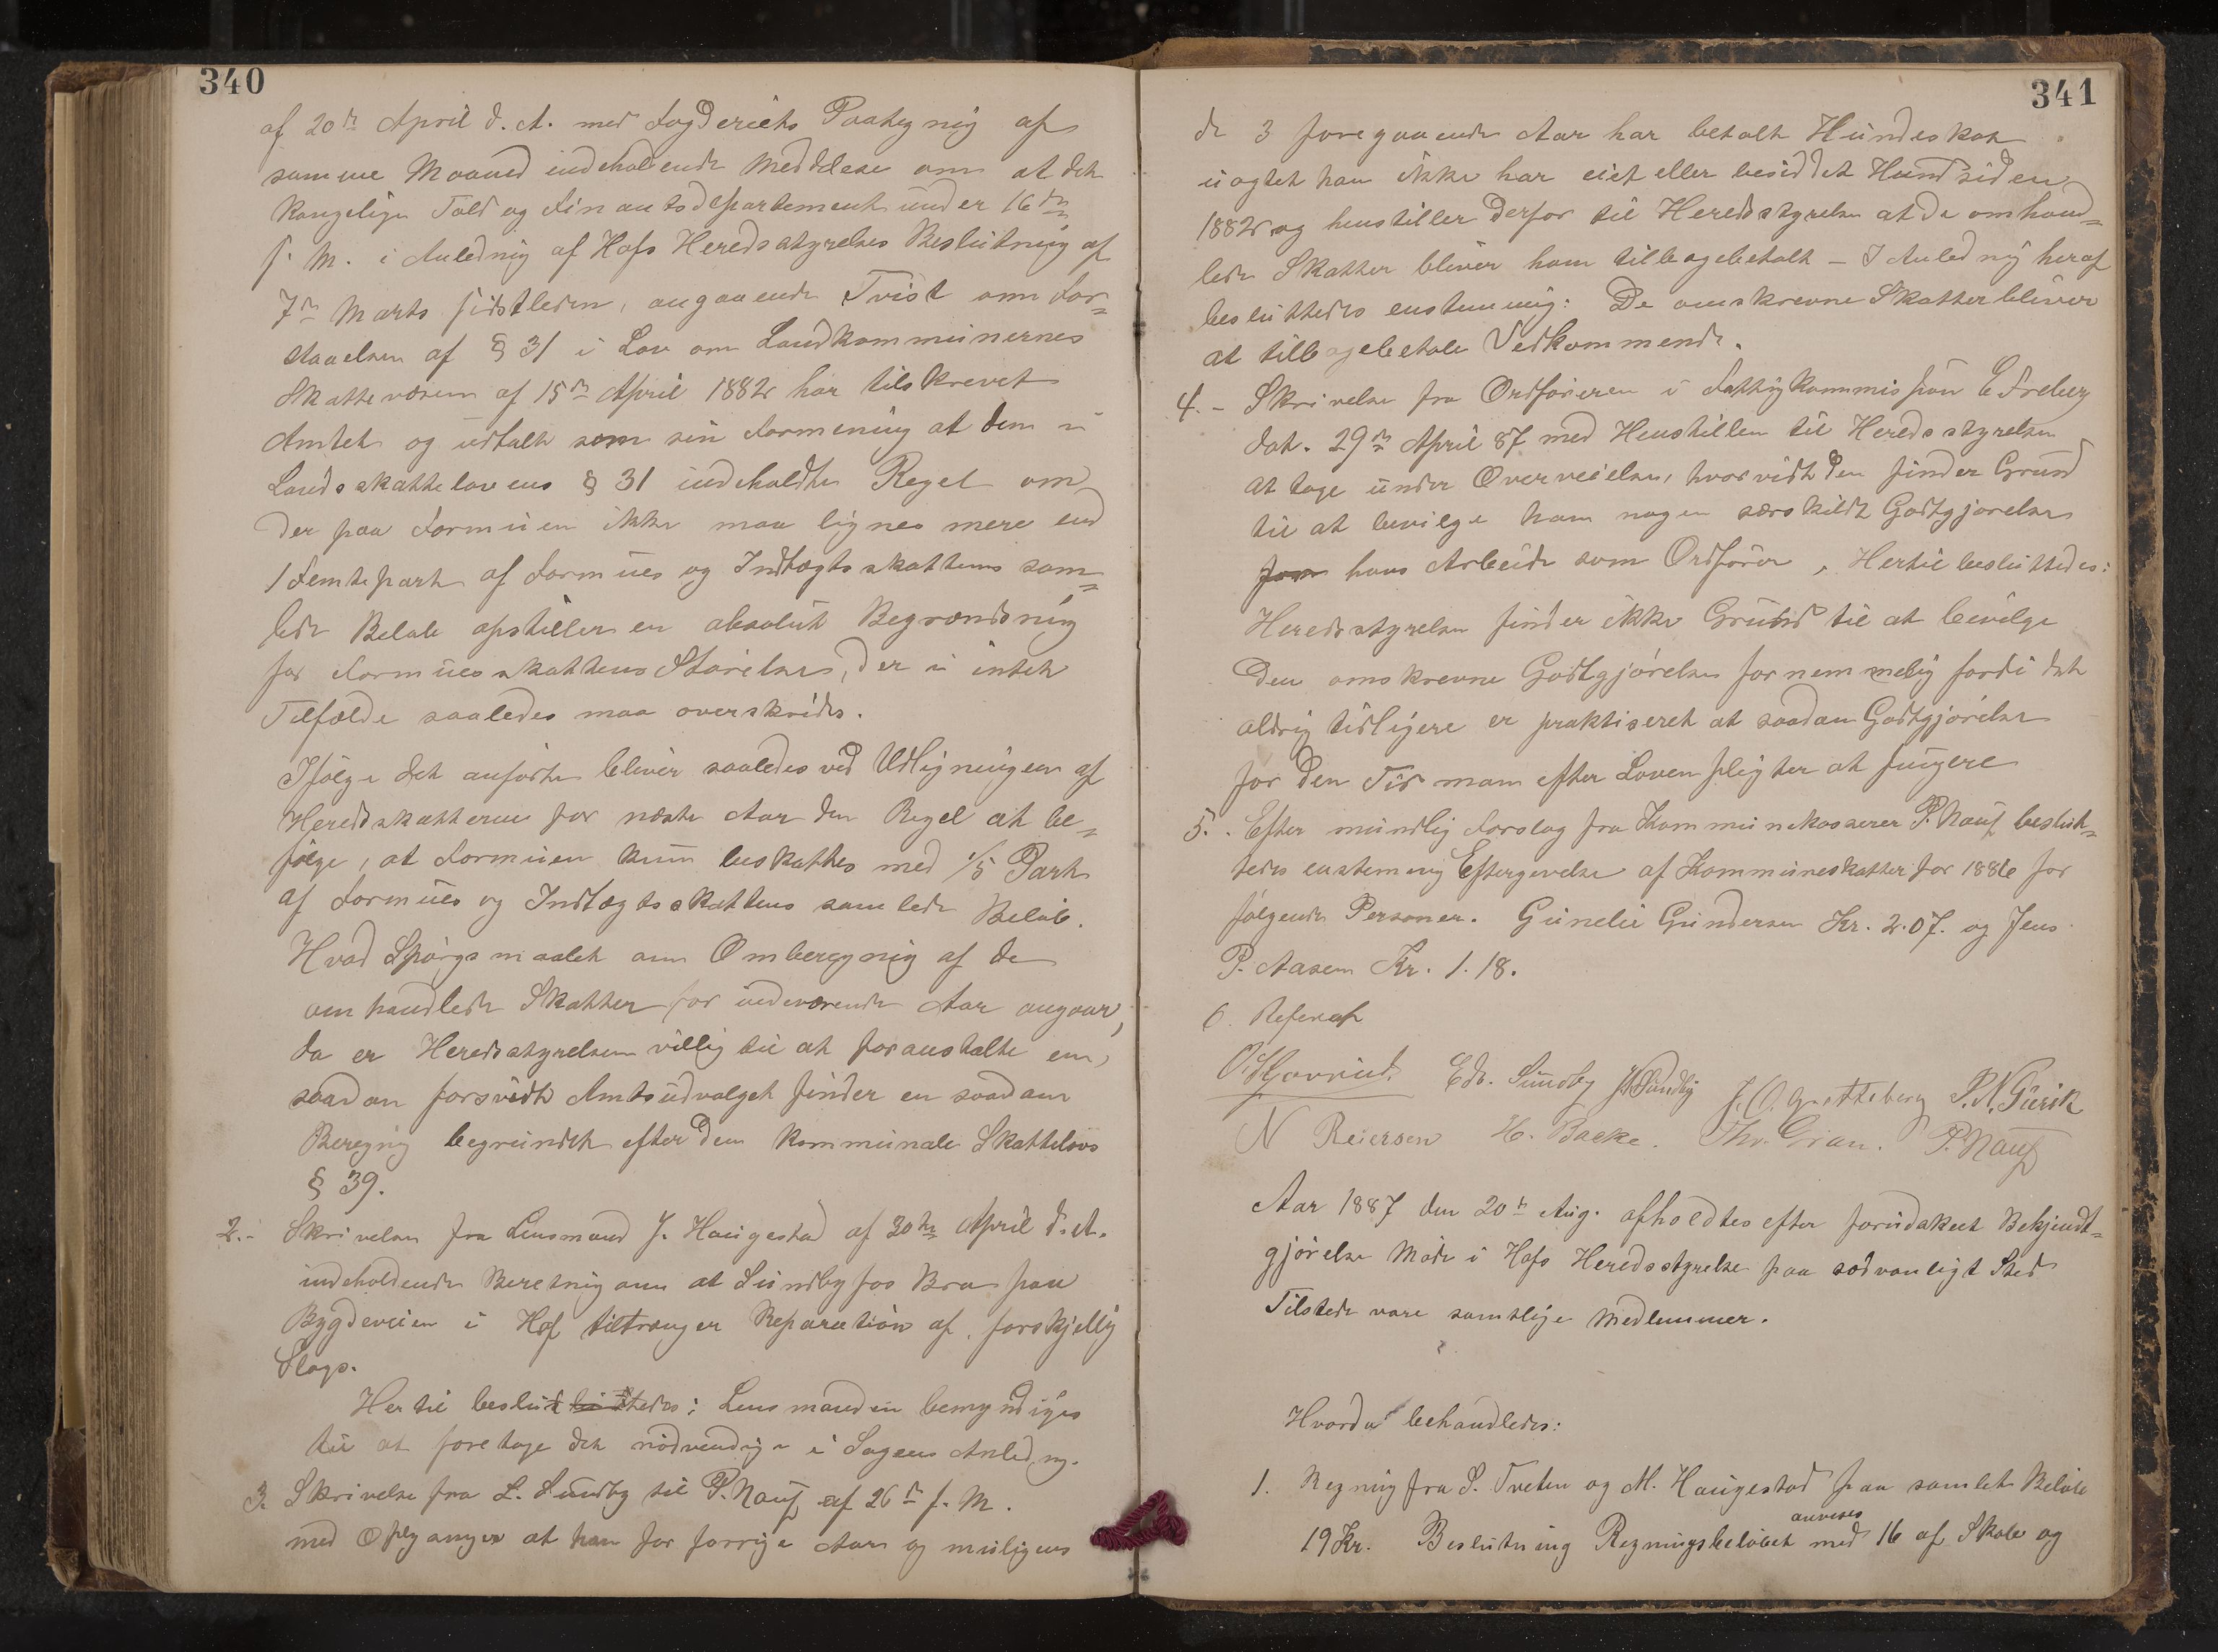 340
af 20de April d. A. med Fogderiets Paategning af
samme Maaned indeholdende Meddelese om at det
kongelige Told og Finantsdepartement under 16de
s. M. i Anledning af Hofs Heredsstyrelses Beslutning af
7de Marts sidstleden, angaaende Tvist om For=
staaelsen af § 31 i Lov om Landkommunernes
Skattevæsen af 15de April 1882 har tilskrevet
Amtet og udtalt som sin Formening at den i
Landsskattelovens § 31 indeholdte Regel om
der paa Formuen ikke maa lignes mere end
1 Femtepart af Formues og Indtægtsskattens sam=
lede Beløb opstiller en absolut Begrændsning
for Formuesskattens Størelse, der i intet
Tilfælde saaledes maa overskrides.
Ifølge det anførte bliver saaledes ved Udligningen af
Heredsskatterne for næste Aar den Regel at be=
følge, at Formuen kun beskattes med 1/5 Part
af Formues og Indtægtsskattens samlede Beløb.
Hvad Spørgsmaalet om Omberegning af de
omhandlede Skatter for indeværende Aar angaar,
da er Heredsstyrelsen villig til at foranstalte en
saadan forsvidt Amtsudvalget finder en saadan
Beregnig begrundet efter den kommunale Skattelovs
§ 39.
2.- Skrivelse fra Lensmand J. Haugestad af 30te April d. A.
indeholdende Beretnig om at Sundbyfos Bro paa
Bygdeveien i Hof tiltrænger Reparation af forskjellig
Slags.
Hertil besluttedes: Lensmanden bemyndiges
til at foretage det nødvendige i Sagens Anledng.
3. Skrivelse fra L. Sundby til P. Nauf af 26de f. M.
med Opgyanger at han for forrige Aar og muligens
341
de 3 foregaaende Aar har betalt Hundeskat
uagtet han ikke har eiet eller besiddet Hund siden
1882 og henstiller derfor til Heredsstyrelsen at de omhand=
lede Skatter bliver ham tilbagebetalt - I Anledning heraf
besluttedes enstemmig: De omskrevne Skatter bliver
at tilbagebetale Vedkommende.
4.- Skrivelse fra Ordføreren i Fattigkommission E Freberg
dat. 29de April 87 med Henstillen til Heredsstyrelsen
at tage under Overveielse, hvorvidt den finder Grund
til at bevilge ham nogen særskildt Godtgjørelse
for hans Arbeide som Ordfører, Hertil besluttedes:
Heredsstyrelsen finder ikke Grund til at bevilge
den omskrevne Godtgjørelse fornemmelig fordi det
aldrig tidligere er praktiseret at saadan Godtgjørelse
for den Tid man efter Loven pligter at fungere
5. Efter mundlig Forslag fra Kommunekasserer P. Nauf beslut=
tedes enstemmig Eftergivelse af Kommuneskatter for 1886 for
følgende Personer. Gunelie Gundersen Kr. 2.07. og Jens
P. Aasen Kr. 1.18.
6. Referat
Edv. Sundby J. Sundby J. O. Grætteberg P. N. Gurik
N Reiersen H. Backe. Thv. Gran. P. Nauf
Aar 1887 den 20de Aug. afholdtes efter forudskeet Bekjendt=
gjørelse Møde i Hofs Heredsstyrelse paa sædvanligt Sted
Tilstede vare samtlige Medlemmer.
Hvorda behandledes:
1. Regning fra S. Tveten og M. Haugestad paa samlet Beløb
19 Kr. Beslutning Regningsbeløbet anvises med 16 af Skole og